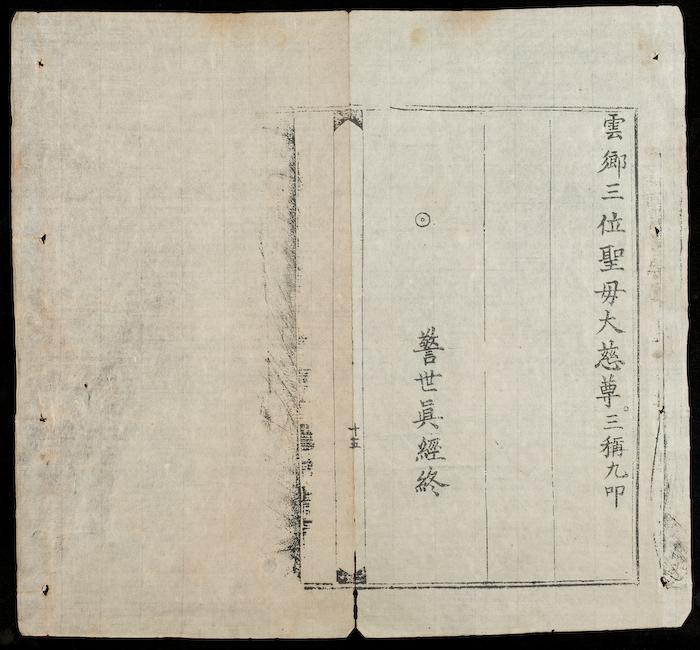 雲鄉三位聖毋大慈尊。三稱九叩
警世眞經終
十五